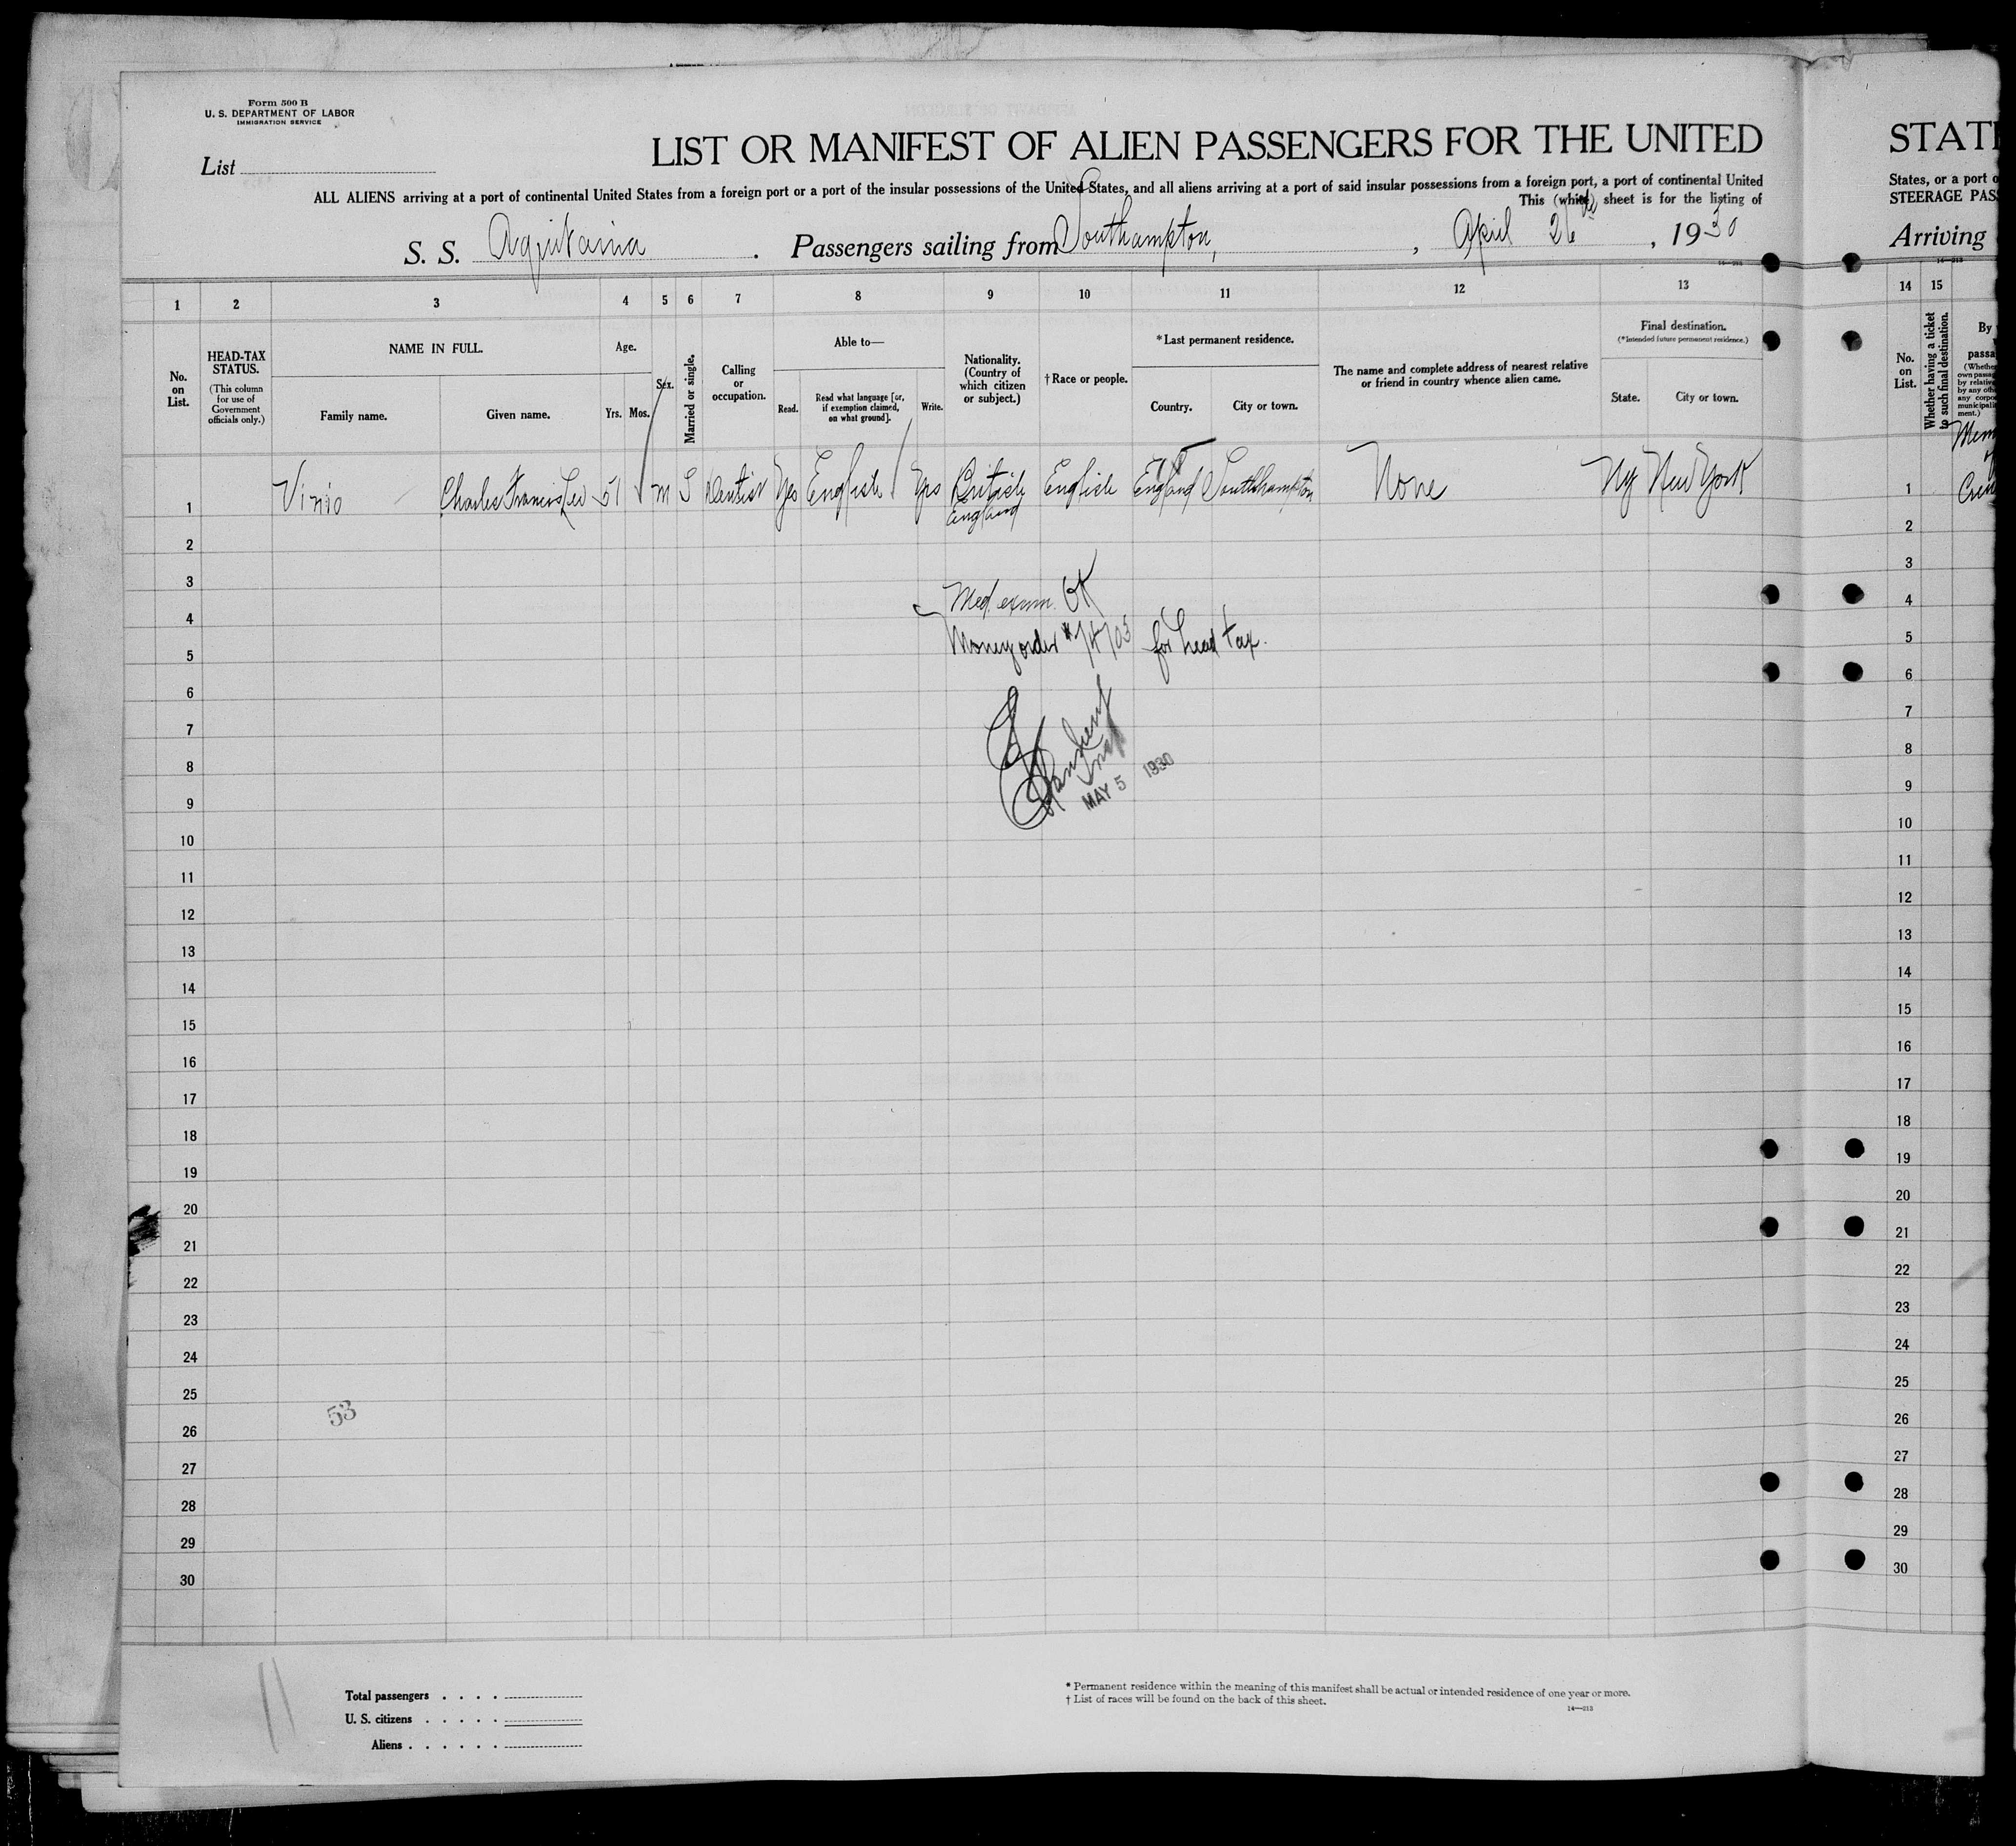 Form 500 B
U. S. DEPARTMENT OF LABOR
IMMIGRATION SERVICE
List
LIST OR MANIFEST OF ALIEN PASSENGERS FOR THE UNITED
ALL ALIENS arriving at a port of continental United States from a foreign port or a port of the insular possessions of the United States, and all aliens arriving at a port of said insular possessions from a foreign port, a port of continental United
This (white) sheet is for the listing of
S. S. Aquitania . Passengers sailing from Southampton, , April 26th , 1930
1 2 3 4 5 6 7 8 9 10 11 12 13
No. on List.
HEAD-TAX STATUS.
(This column for use of Government officials only.)
NAME IN FULL.
Family name.
Given name.
Age.
Yrs. Mos.
Sex.
Married or single.
Calling or occupation.
Able to—
Read.
Read what language [or, if exemption claimed, on what ground].
Write.
Nationality. (Country of which citizen or subject.)
† Race or people.
*Last permanent residence.
Country.
City or town.
The name and complete address of nearest relative or friend in country whence alien came.
Final destination.
(*Intended future permanent residence.)
State.
City or town.
1 Charles Francis 51 m S Dentist Yes English Yes British English England Southhampton None Ny New York
England
2
3
Med. exam. OK
4
Money order for head tax.
5
6
7
8
MAY 5 1930
9
10
11
12
13
14
15
16
17
18
19
20
21
22
23
24
25
53
26
27
28
29
30
Total passengers . . . .
U. S. citizens . . . . .
Aliens . . . . . .
* Permanent residence within the meaning of this manifest shall be actual or intended residence of one year or more.
† List of races will be found on the back of this sheet.
14—213
STATE
States, or a port o
STEERAGE PAS
Arriving
14—213
14 15
No. on List.
Whether having a ticket to such final destination.
By
passa
(Whether
own passag
by relative
by any oth
any corpo
municipali
ment.)
1
2
3
4
5
6
7
8
9
10
11
12
13
14
15
16
17
18
19
20
21
22
23
24
25
26
27
28
29
30